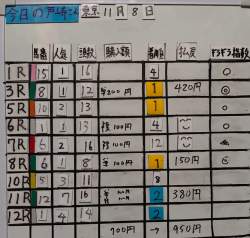 今日の戸崎さん 東京 11月8日
馬番 人気 頭数 購入額 着順 払戻 ドキドキ指数
1R 15 1 16 4 ○
3R 8 1 12 200円 1 420円 ◎
5R 10 2 10 1 ○
6R 1 1 13 複100円 4 ○
7R 6 2 16 複100円 12
8R 6 1 8 100円 1 150円 ◎
10R 5 3 11 8
11R 12 7 16 2 380円
12R 1 4 14 2
700円 → 950円